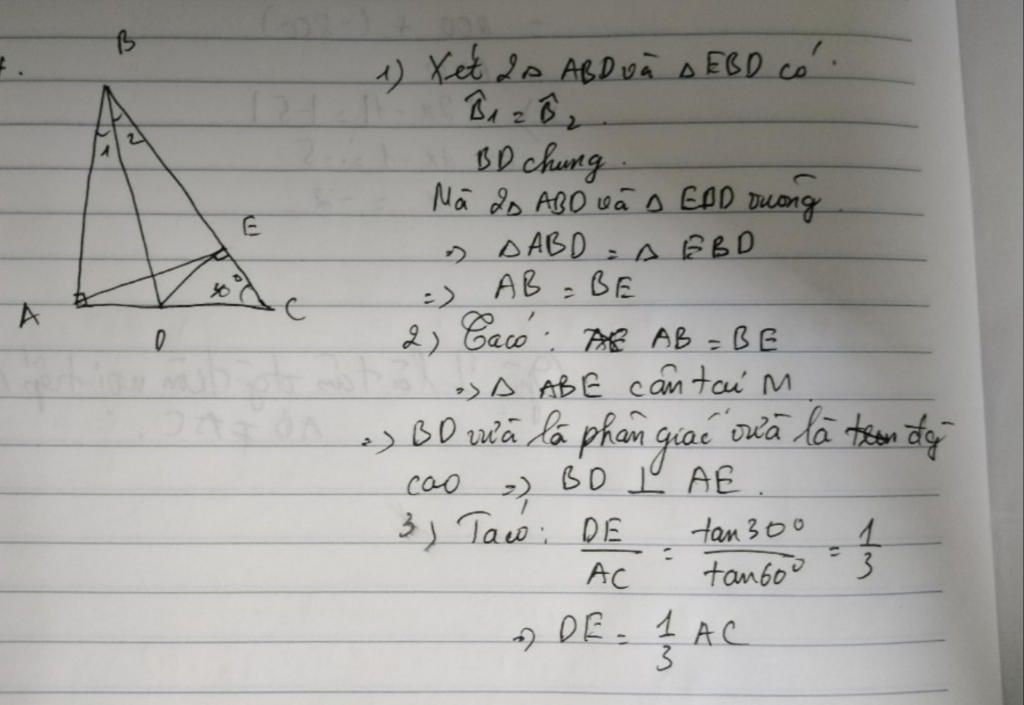 B
1) Xét 2△ ABD và △ EBD có:
B̂1 = B̂2.
1 2
BD chung.
Mà 2△ ABD và △ EBD vuông.
E
=> △ABD = △ EBD
=> AB = BE
30°
A
C
D
2) Ta có: AB = BE
=> △ ABE cân tại M.
=> BD vừa là phân giác vừa là đg
cao => BD ⊥ AE.
3) Ta có: DE/AC = tan30°/tan60° = 1/3
=> DE = 1/3 AC